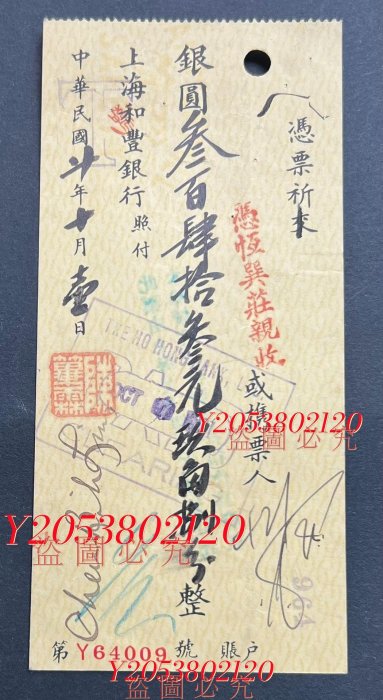 憑票祈
憑恆巽莊親收或攜票人
銀圓叁百肆拾叁元玖角捌分整
上海和豐銀行照付
中華民國廿年十月壹日
THE HO HONG BANK,
OCT
Y2053802120
盜圖必究
Y2053802120
盜圖必究
964
第Y64009號 賬戶
Y2053802120
盜圖必究